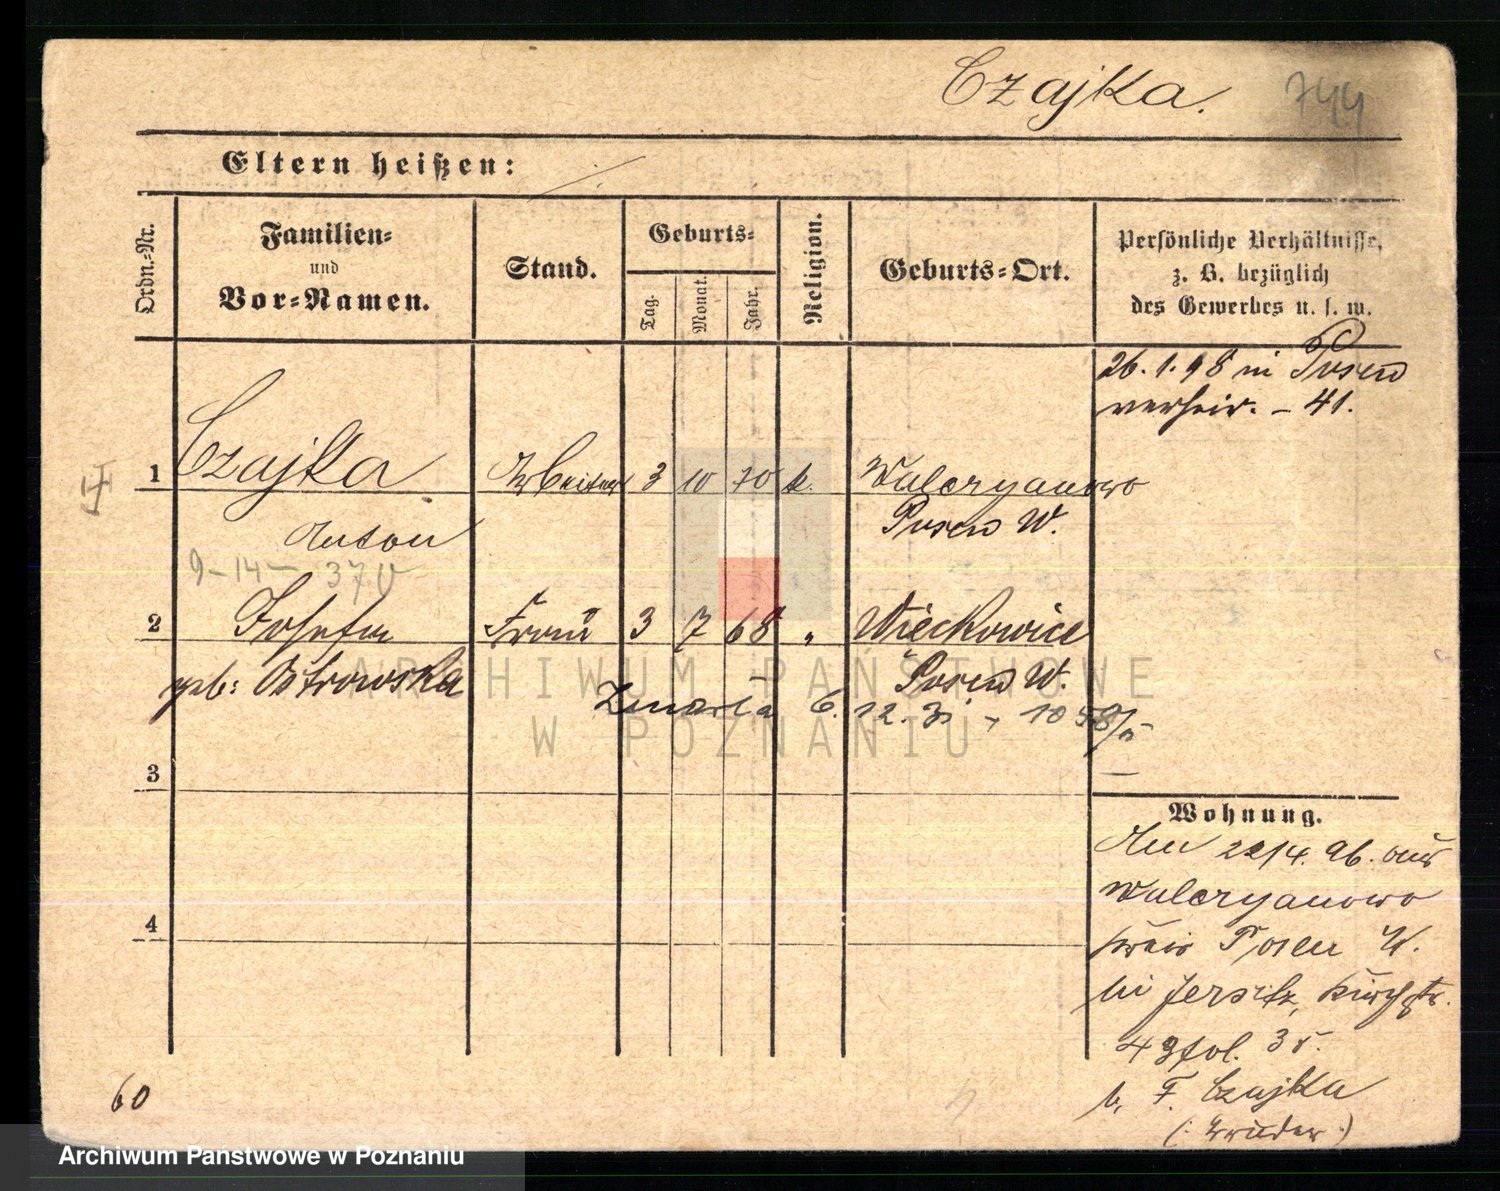 Czajka. 744
Eltern heißen:
Ordn.-Nr.
Familien-
und
Vor-Namen.
Stand.
Geburts-
Tag.
Monat.
Jahr.
Religion.
Geburts-Ort.
Persönliche Verhältnisse,
z. B. bezüglich
des Gewerbes u. s. w.
26.1.98 in Posen
verheir. - 41.
1 Czajka Arbeiter 3 10 70 k. Waleryanowo
Anton Posen W.
9-14-
2 Josefa Frau 3 7 68 " Wieckowice
geb: Ostrowska Posen W.
Zmarła 6.12.31
3
4
Wohnung.
Am 22/4.96. aus
Waleryanowo
Kreis Posen W.
in Jersitz, Kirchstr.
b. F. Czajka
(: Bruder :)
60
ARCHIWUM PAŃSTWOWE
W POZNANIU
Archiwum Państwowe w Poznaniu